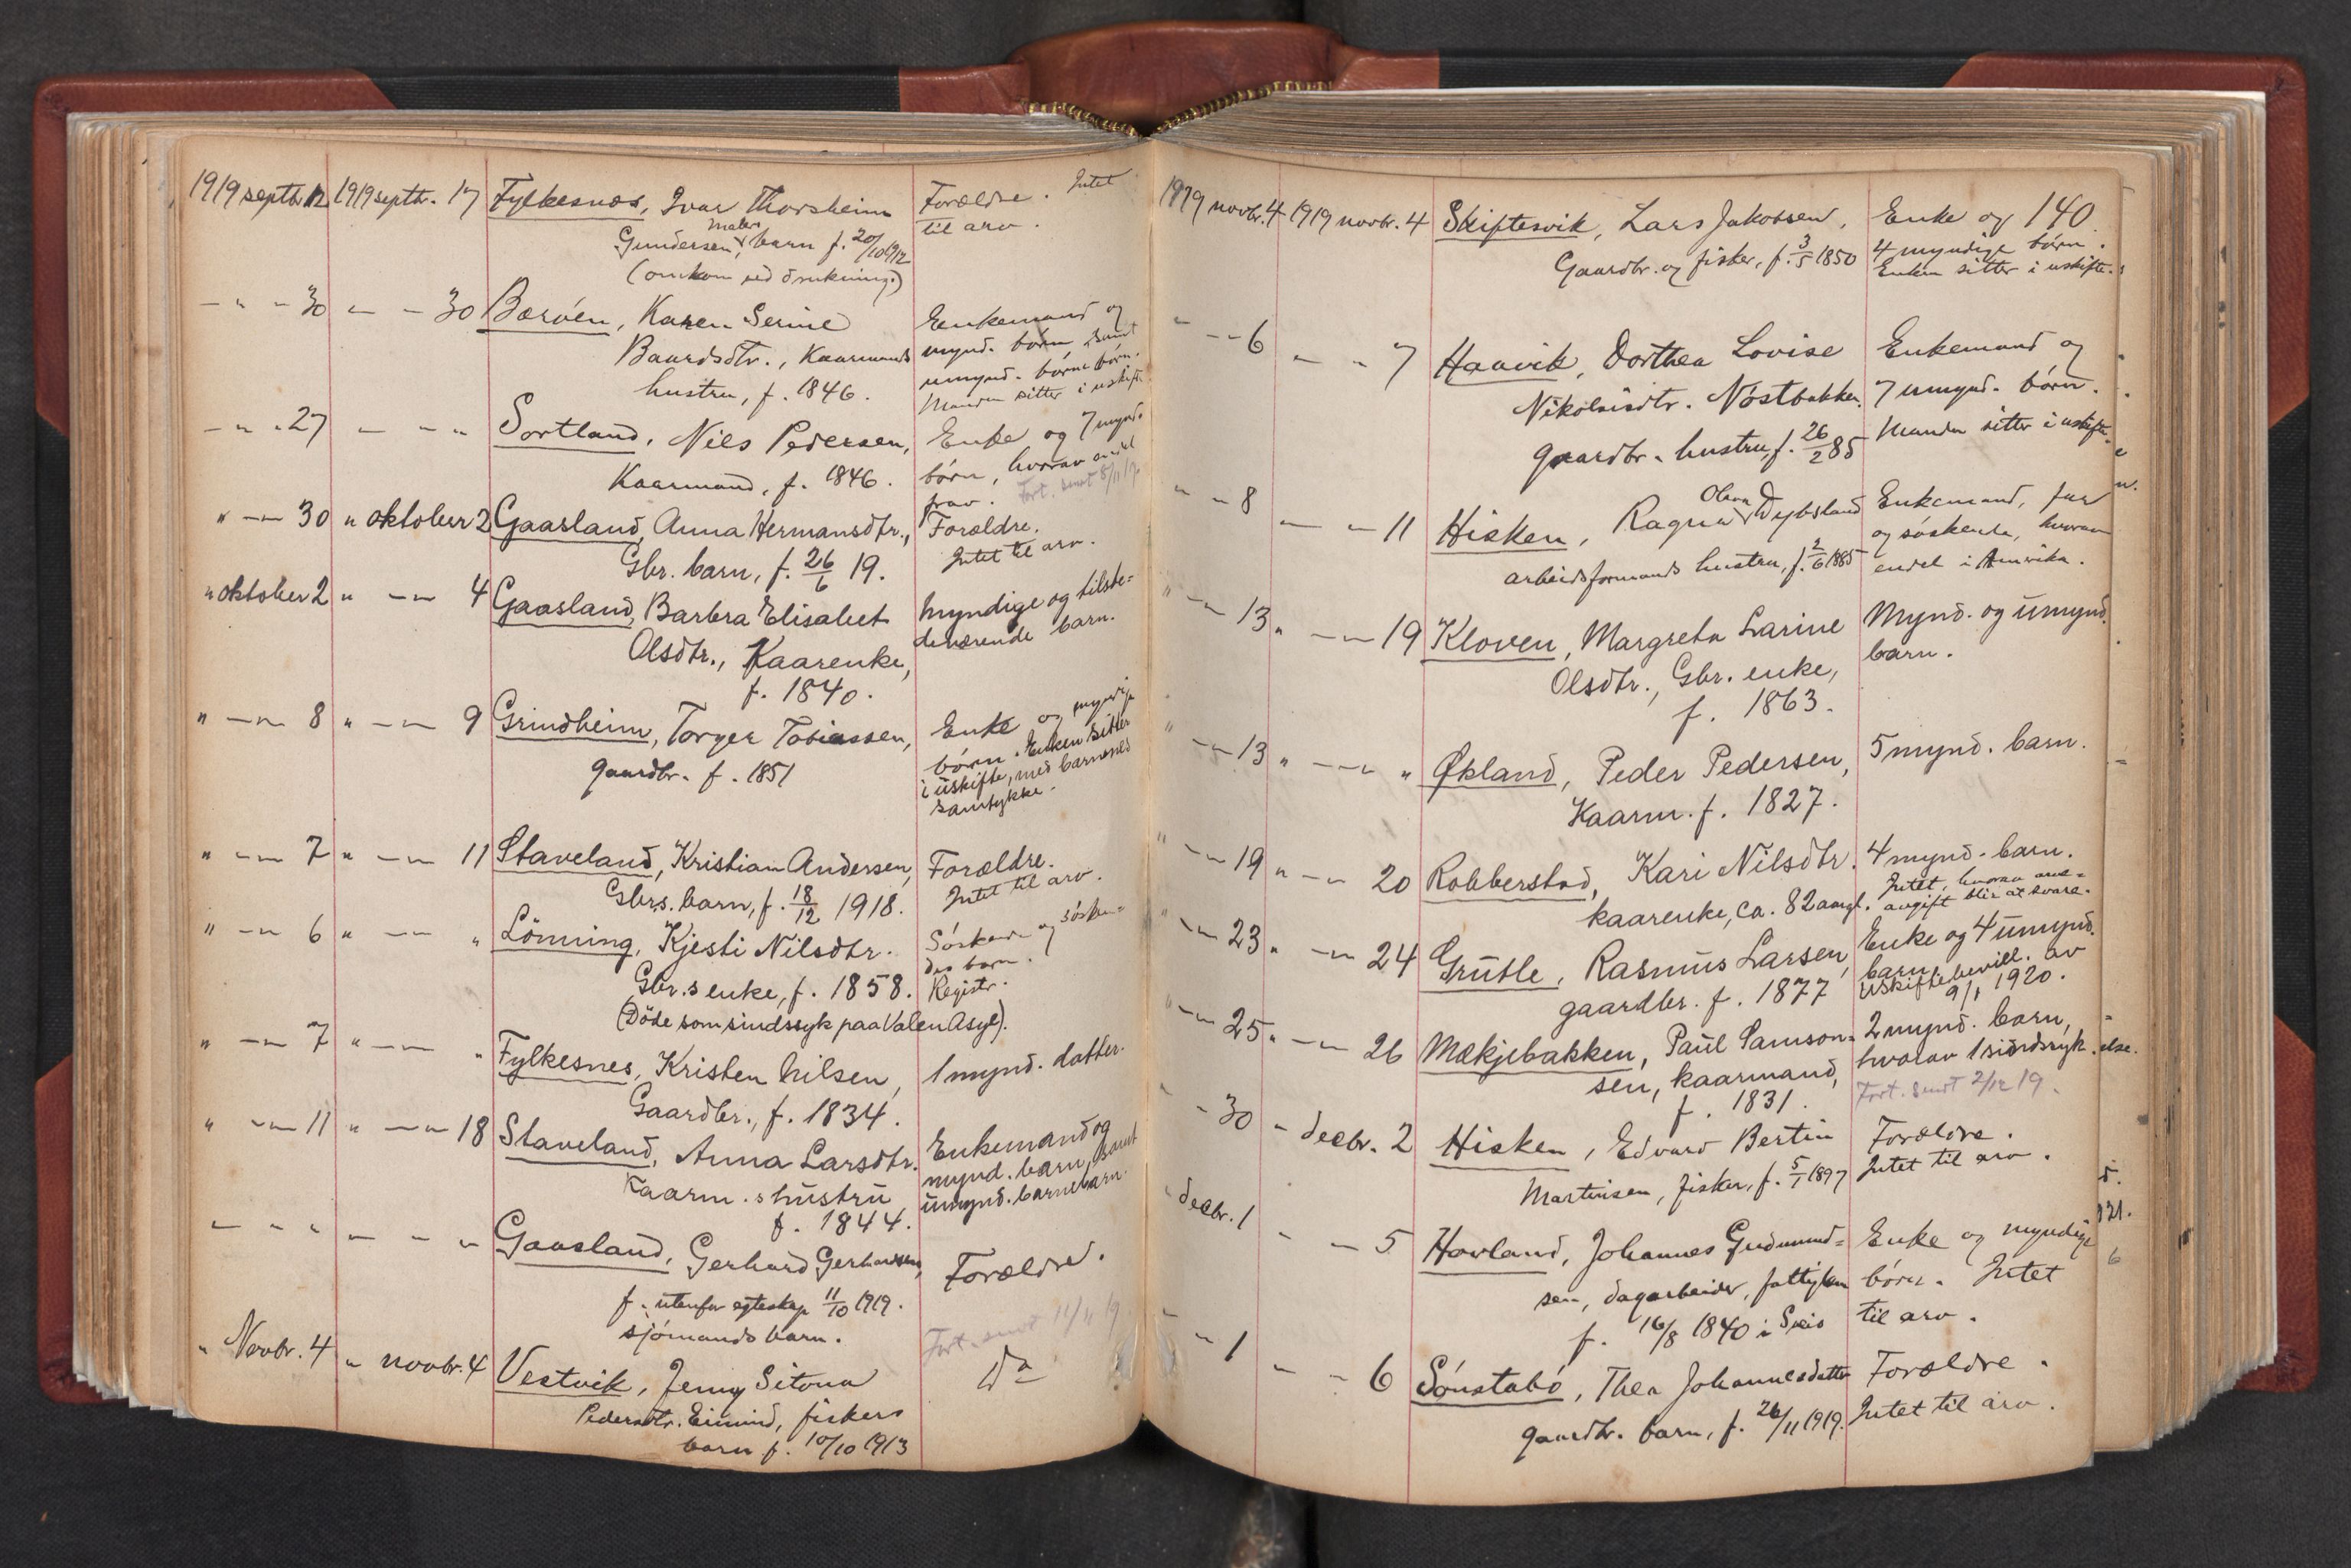 1919 septbr. 12 1919 septbr. 17 Fylkesnes, Ivar Thorsheim Forældre. Intet
Gundersen, maler barn f. 20/10 1912 til arv.
(omkom ved drukning.)
- " - 30 " - 30 Børven, Karen Serine Enkemand og
Baardsdtr., Kaarmands mynd. børn samt
hustru, f. 1846. umynd. børnebørn.
Manden sitter i uskifte
- " - 27 - - " Sortland, Nils Pedersen, Enke og 7 mynd.
Kaarmand, f. 1846. børn, hvorav endel
frav. Fort. sendt 8/11 19
" - 30 " oktober 2 Gaasland, Anna Hermansdtr., Forældre.
Gbr. barn, f. 26/6 19. Intet til arv.
" oktober 2 " - 4 Gaasland, Barbra Elisabet Myndige og tilste-
Olsdtr., Kaarenke, deværende barn.
f. 1840.
" - 8 " - 9 Grindheim, Torger Tobiassen, Enke og myndige
gaardbr. f. 1851 børn. Enken sitter
i uskifte, med barnenes
samtykke.
" - 7 " - 11 Staveland, Kristian Andersen, Forældre.
Gbrs. barn, f. 18/12 1918. Intet til arv.
" - 6 " - " Lönning, Kjesti Nilsdtr. Søskende og søsken-
Gbr.s enke, f. 1858. des barn.
(Döde som sindssyk paa Valen Asyl). Registr.
" - 7 " - " Fylkesnes, Kristen Nilsen, 1 mynd. datter.
Gaardbr., f. 1834.
" - 11 " - 18 Staveland, Anna Larsdtr. Enkemand og
Kaarm.s hustru mynd. barn, samt
f. 1844. umynd. barnebarn.
- " " - - " Gaasland, Gerhard Gerhardsen, Forældre.
f. utenfor egteskap 11/10 1919.
sjømands barn. Fort. sendt 11/11 19
" Novbr. 4 " novbr. 4 Vestvik, Jenny Sitona Do
Pedersdtr. Eimind, fiskers
barn f. 10/10 1913
140
1919 novbr. 4 1919 novbr. 4 Skiftesvik, Lars Jakobsen, Enke og
Gaardbr. og fisker, f. 3/5 1850 4 myndige børn.
Enken sitter i uskifte.
" - 6 - - 7 Haavik, Dorthea Lovise Enkemand og
Nikolaisdtr. Nøstbakken, 7 umynd. børn.
gaardbr. hustru, f. 26/2 85 Manden sitter i uskifte.
" - 8 - - 11 Hisken, Ragna Olava Dybsland Enkemand, far
arbeidsformands hustru, f. 2/6 1885 og søskende, hvorav
endel i Amerika.
" - 13 " - 19 Kloven, Margreta Larine Mynd. og umynd.
Olsdtr., Gbr. enke, barn.
f. 1863.
" - 13 " - " Økland, Peder Pedersen, 5 mynd. barn.
Kaarm. f. 1827.
" - 19 " - 20 Robberstad, Kari Nilsdtr. 4 mynd. barn.
kaarenke, ca. 82 aargl. Intet, hvorav arve-
avgift blir at svare.
" - 23 " - 24 Grutle, Rasmus Larsen, Enke og 4 umynd.
gaardbr. f. 1877 barn. Uskiftebevill. av
9/1 1920.
" - 25 " - 26 Mækjebakken, Paul Samson- 2 mynd. barn,
sen, kaarmand, hvorav 1 sindssyk.
f. 1831. Fort. sendt 2/12 19.
" - 30 - decbr. 2 Hisken, Edvard Bertin Forældre.
Martinsen, fisker, f. 5/1 1897 Intet til arv.
decbr. 1 - - 5 Hovland, Johannes Gudmund- Enke og myndige
sen, dagarbeider, fattiglem børn. Intet
f. 16/8 1840 i Sveio til arv.
" - 1 - - 6 Sønstabø, Thea Johannesdatter Forældre.
gaardbr. barn, f. 26/11 1919. Intet til arv.